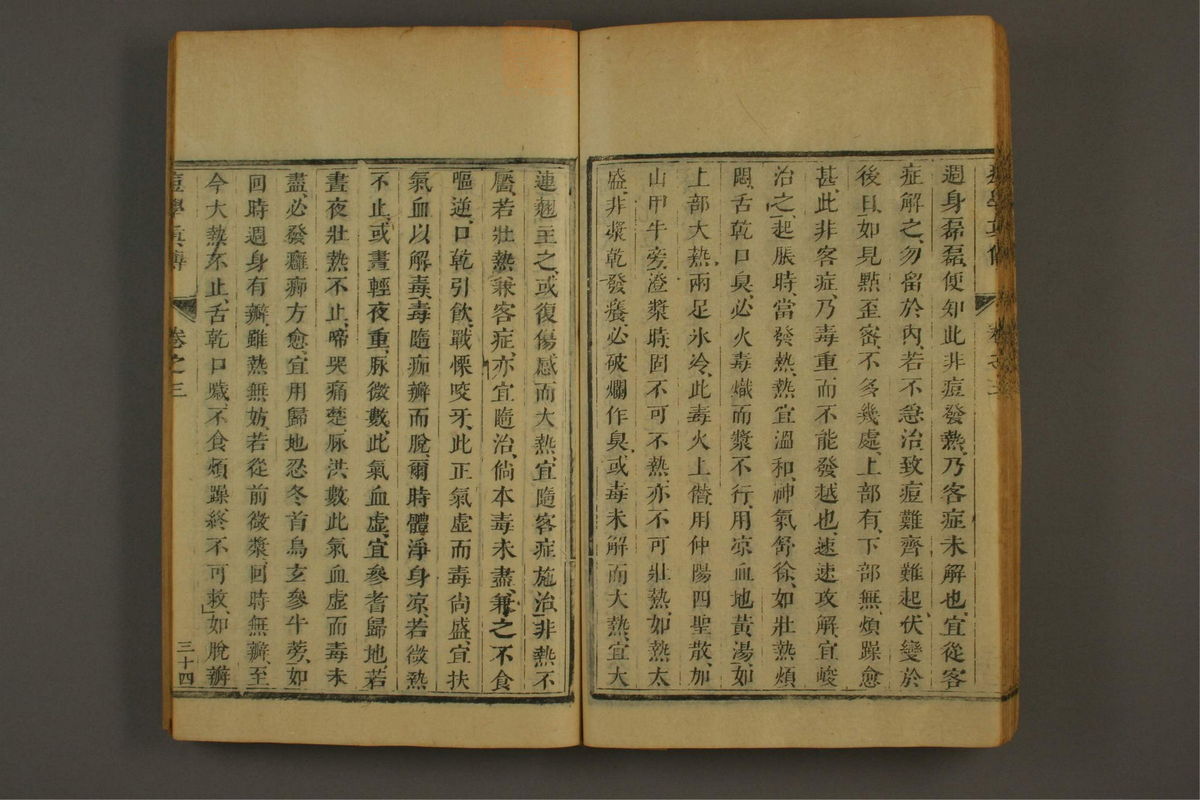 痘學真傳 卷之三
週身磊磊、便知此非痘發熱、乃客症未解也、宜從客
症解之、勿留於內、若不急治、致痘難齊難起、伏變於
後日、如見點歪密、不多幾處、上部有、下部無、煩躁愈
甚、此非客症、乃毒重而不能發越也、速速攻解、宜峻
治之、起脹時、當發熱、熱宜溫和、神氣舒徐、如壯熱煩
悶、舌乾口臭、必火毒熾而漿不行、用凉血地黃湯、如
上部大熱、兩足氷冷、此毒火上僭、用仲陽四聖散、加
山甲牛蒡、澄漿時、固不可不熱、亦不可壯熱、如熱太
盛、非漿乾發癢、必破爛作臭、或毒未解而大熱、宜大
連翹主之、或復傷感而大熱、宜隨客症施治、非熱不
靨、若壯熱兼客症、亦宜隨治、倘本毒未盡、兼之不食
嘔逆、口乾引飲、戰慄咬牙、此正氣虛而毒尚盛、宜扶
氣血以解毒、毒隨痂瓣而脫、爾時體淨身凉、若微熱
不止、或晝輕夜重、脉微數、此氣血虛、宜參耆歸地、若
晝夜壯熱不止、啼哭痛楚、脉洪數、此氣血虛而毒未
盡、必發癰癤方愈、宜用歸地忍冬首烏玄參牛蒡、如
回時週身有瓣、雖熱無妨、若從前微漿、回時無瓣、至
今大熱不止、舌乾口噦、不食煩躁、終不可救、如脫瓣
痘學真傳 卷之三 三十四